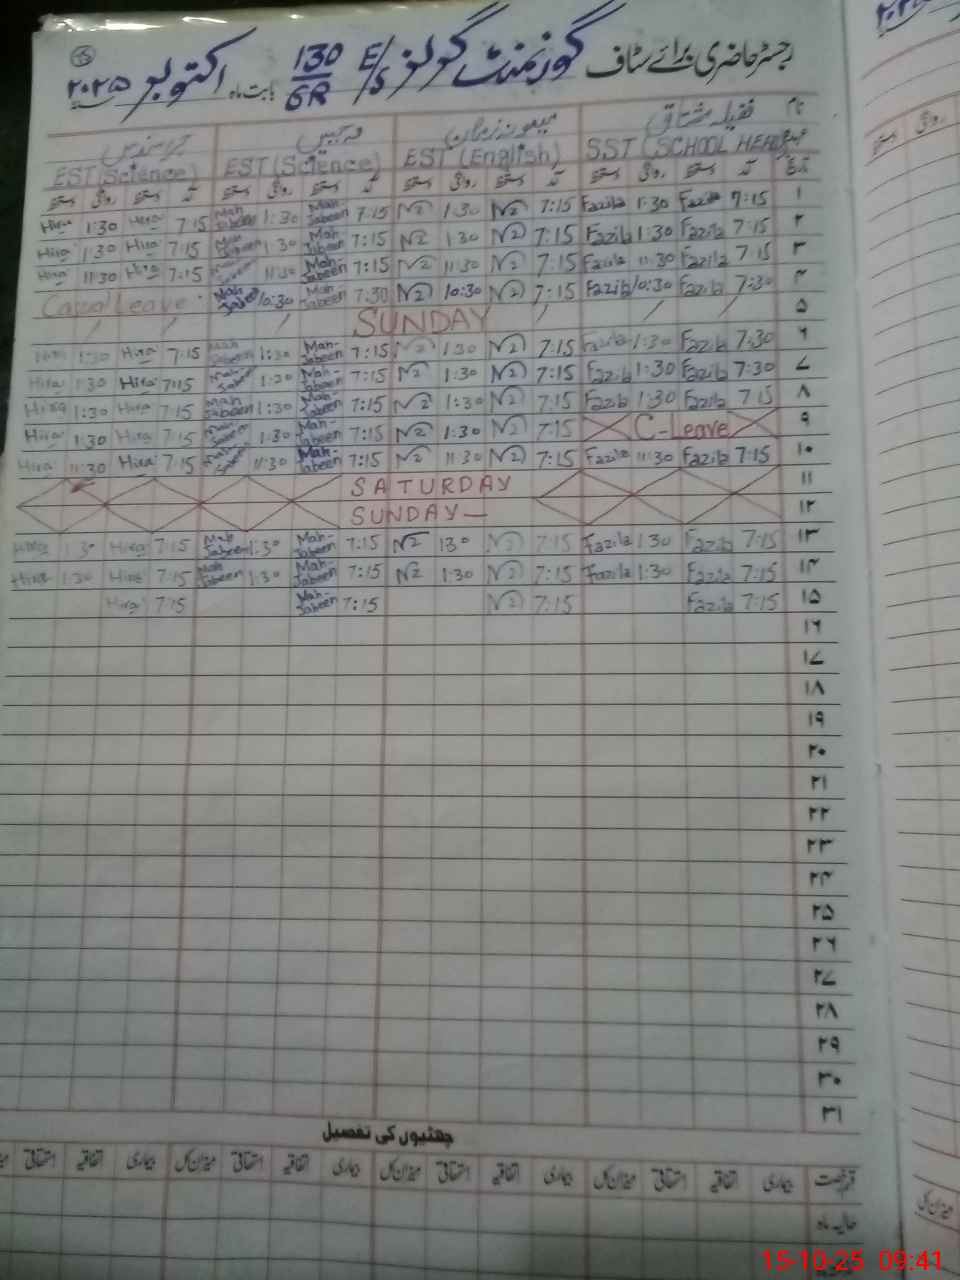 رجسٹر حاضری برائے سٹاف گورنمنٹ گرلز E/S 130/GR بابت ماہ اکتوبر ۲۰۲۵
نام عقیلہ مشتاق میمونہ زمان مہ جبیں
عہدہ SST (SCHOOL HEAD) EST (English) EST (Science) EST (Science)
تاریخ آمد دستخط روانگی دستخط آمد دستخط روانگی دستخط آمد دستخط روانگی دستخط آمد دستخط روانگی دستخط
۱ 7:15 Fazila 1:30 Fazila 7:15 1:30 7:15 Mah-Jabeen 1:30 Mah Jabeen 7:15 Hira 1:30 Hira
۲ 7:15 Fazila 1:30 Fazila 7:15 1:30 7:15 Mah-Jabeen 1:30 Mah-Jabeen 7:15 Hira 1:30 Hira
۳ 7:15 Fazila 11:30 Fazila 7:15 11:30 7:15 Mah-Jabeen 11:30 Mah-Jabeen 7:15 Hira 11:30 Hira
۴ 7:30 Fazila 10:30 Fazila 7:15 10:30 7:30 Mah-Jabeen 10:30 Mah-Jabeen Casual Leave
۵ SUNDAY
۶ 7:30 Fazila 1:30 Fazila 7:15 1:30 7:15 Mah-Jabeen 1:30 Mah Jabeen 7:15 Hira 1:30 Hira
۷ 7:30 Fazila 1:30 Fazila 7:15 1:30 7:15 Mah-Jabeen 1:30 Mah-Jabeen 7:15 Hira 1:30 Hira
۸ 7:15 Fazila 1:30 Fazila 7:15 1:30 7:15 Mah-Jabeen 1:30 Mah Jabeen 7:15 Hira 1:30 Hira
۹ C-Leave 7:15 1:30 7:15 Mah-Jabeen 1:30 Mah-Jabeen 7:15 Hira 1:30 Hira
۱۰ 7:15 Fazila 11:30 Fazila 7:15 11:30 7:15 Mah-Jabeen 11:30 Mah-Jabeen 7:15 Hira 11:30 Hira
۱۱ SATURDAY
۱۲ SUNDAY
۱۳ 7:15 Fazila 1:30 Fazila 7:15 130 7:15 Mah-Jabeen 1:30 Mah Jabeen 7:15 Hira 1:30 Hira
۱۴ 7:15 Fazila 1:30 Fazila 7:15 1:30 7:15 Mah-Jabeen 1:30 Mah Jabeen 7:15 Hira 1:30 Hira
۱۵ 7:15 Fazila 7:15 7:15 Mah-Jabeen 7:15 Hira
۱۶
۱۷
۱۸
۱۹
۲۰
۲۱
۲۲
۲۳
۲۴
۲۵
۲۶
۲۷
۲۸
۲۹
۳۰
۳۱
چھٹیوں کی تفصیل
قسم رخصت بیماری اتفاقیہ استحقاقی میزان کل بیماری اتفاقیہ استحقاقی میزان کل بیماری اتفاقیہ استحقاقی میزان کل بیماری اتفاقیہ استحقاقی
حالیہ ماہ
میزان کل
15-10-25 09:41